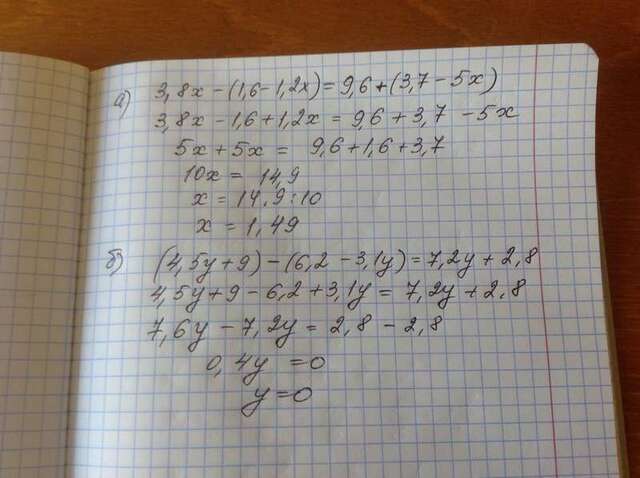 а) 3,8x - (1,6 - 1,2x) = 9,6 + (3,7 - 5x)
3,8x - 1,6 + 1,2x = 9,6 + 3,7 - 5x
5x + 5x = 9,6 + 1,6 + 3,7
10x = 14,9
x = 14,9 : 10
x = 1,49
б) (4,5y + 9) - (6,2 - 3,1y) = 7,2y + 2,8
4,5y + 9 - 6,2 + 3,1y = 7,2y + 2,8
7,6y - 7,2y = 2,8 - 2,8
0,4y = 0
y = 0